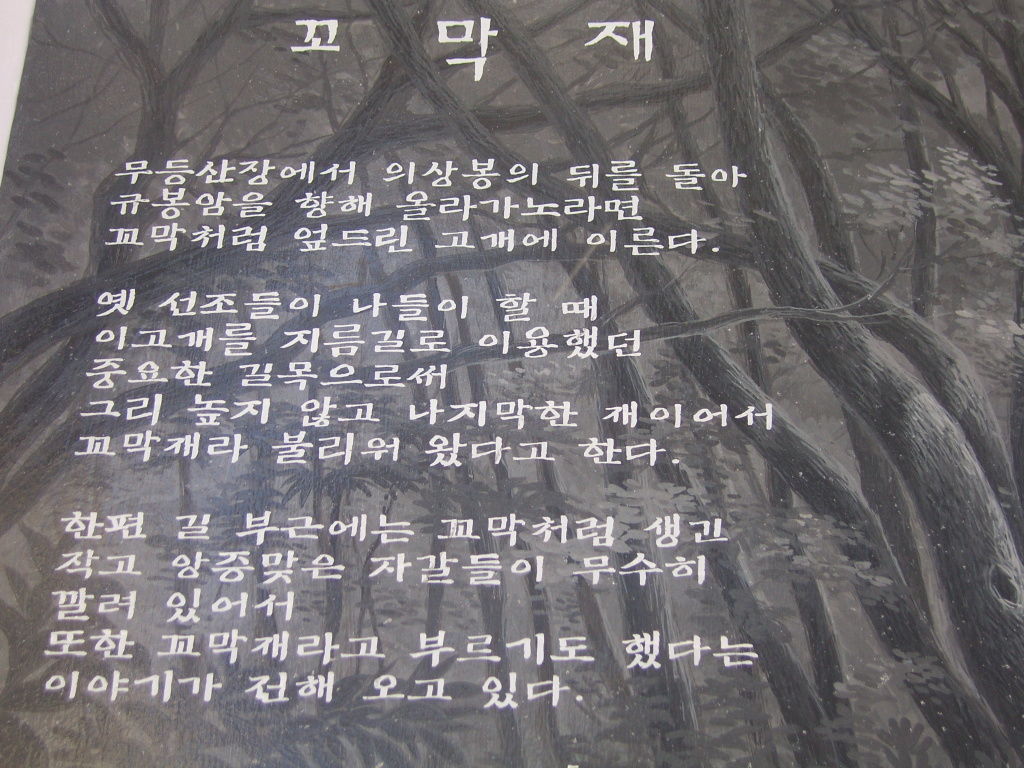 꼬막재
무등산장에서 의상봉의 뒤를 돌아
규봉암을 향해 올라가노라면
꼬막처럼 엎드린 고개에 이른다.
옛 선조들이 나들이 할 때
이고개를 지름길로 이용했던
중요한 길목으로써
그리 높지 않고 나지막한 재이어서
꼬막재라 불리워 왔다고 한다.
한편 길 부근에는 꼬막처럼 생긴
작고 앙증맞은 자갈들이 무수히
깔려 있어서
또한 꼬막재라고 부르기도 했다는
이야기가 전해 오고 있다.